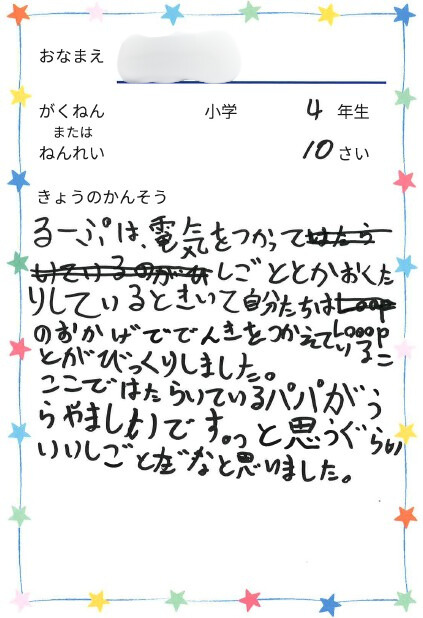 おなまえ
がくねん 小学 4 年生
または
ねんれい 10 さい
きょうのかんそう
るーぷは、電気をつかって
しごととかおくた
りしているときいて自分たちは
Looop
のおかげででんきをつかえているこ
とがびっくりしました。
ここではたらいているパパがう
らやましいです。っと思うぐらい
いいしごとだなと思いました。